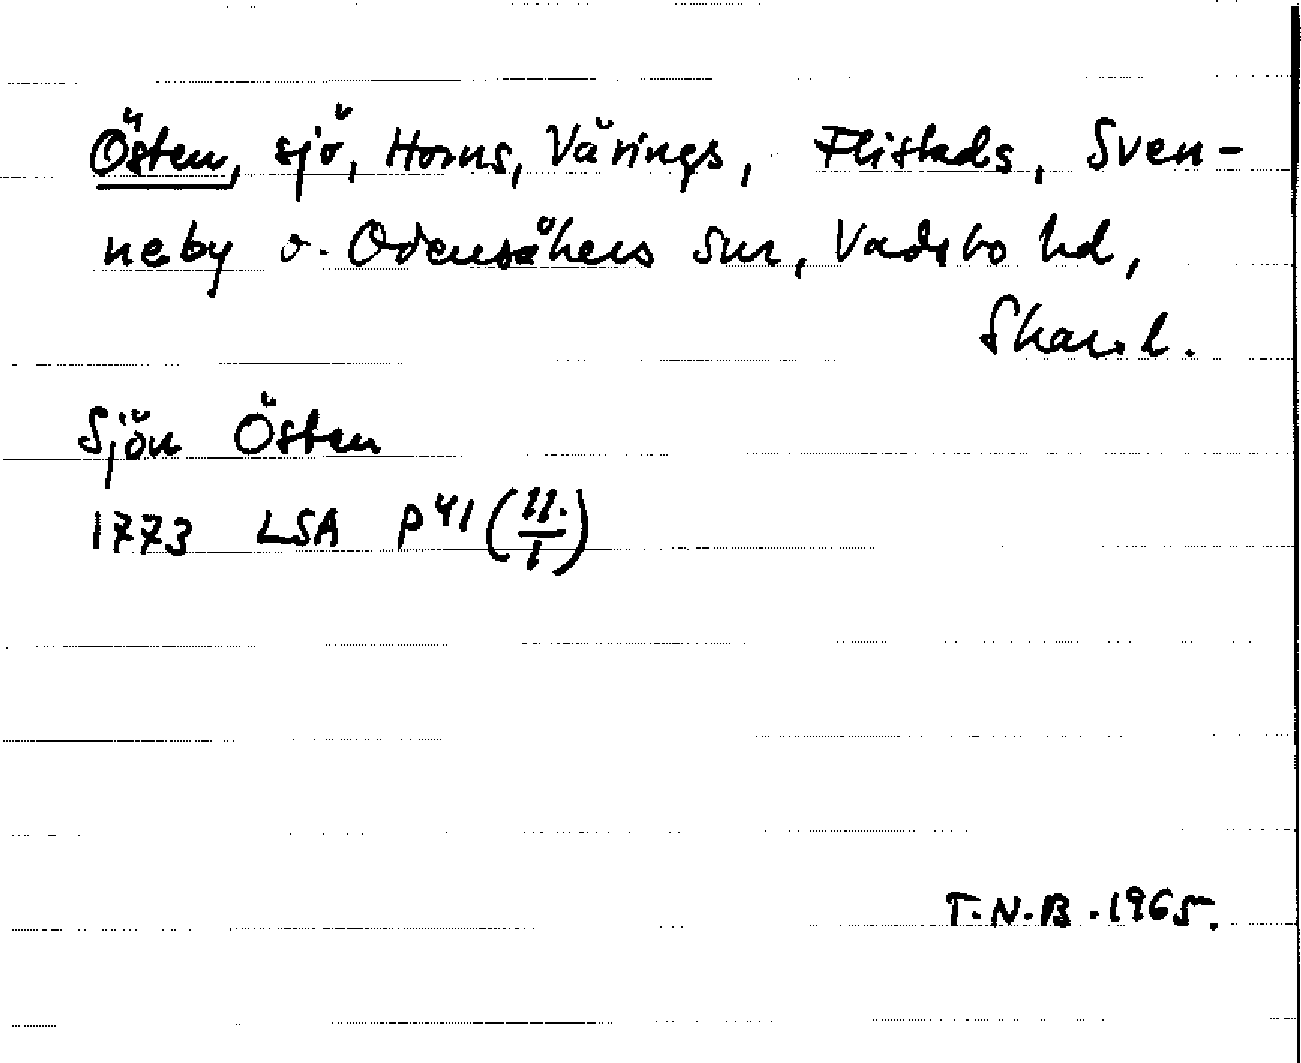 Östen, sjö, Horns, Värings, Flistads, Sven-
neby o. Odensåkers snr, Vadsbo hd,
Skar.l.
Sjön Östen
1773 LSA P41 (11./1)
T.N.B. 1965.